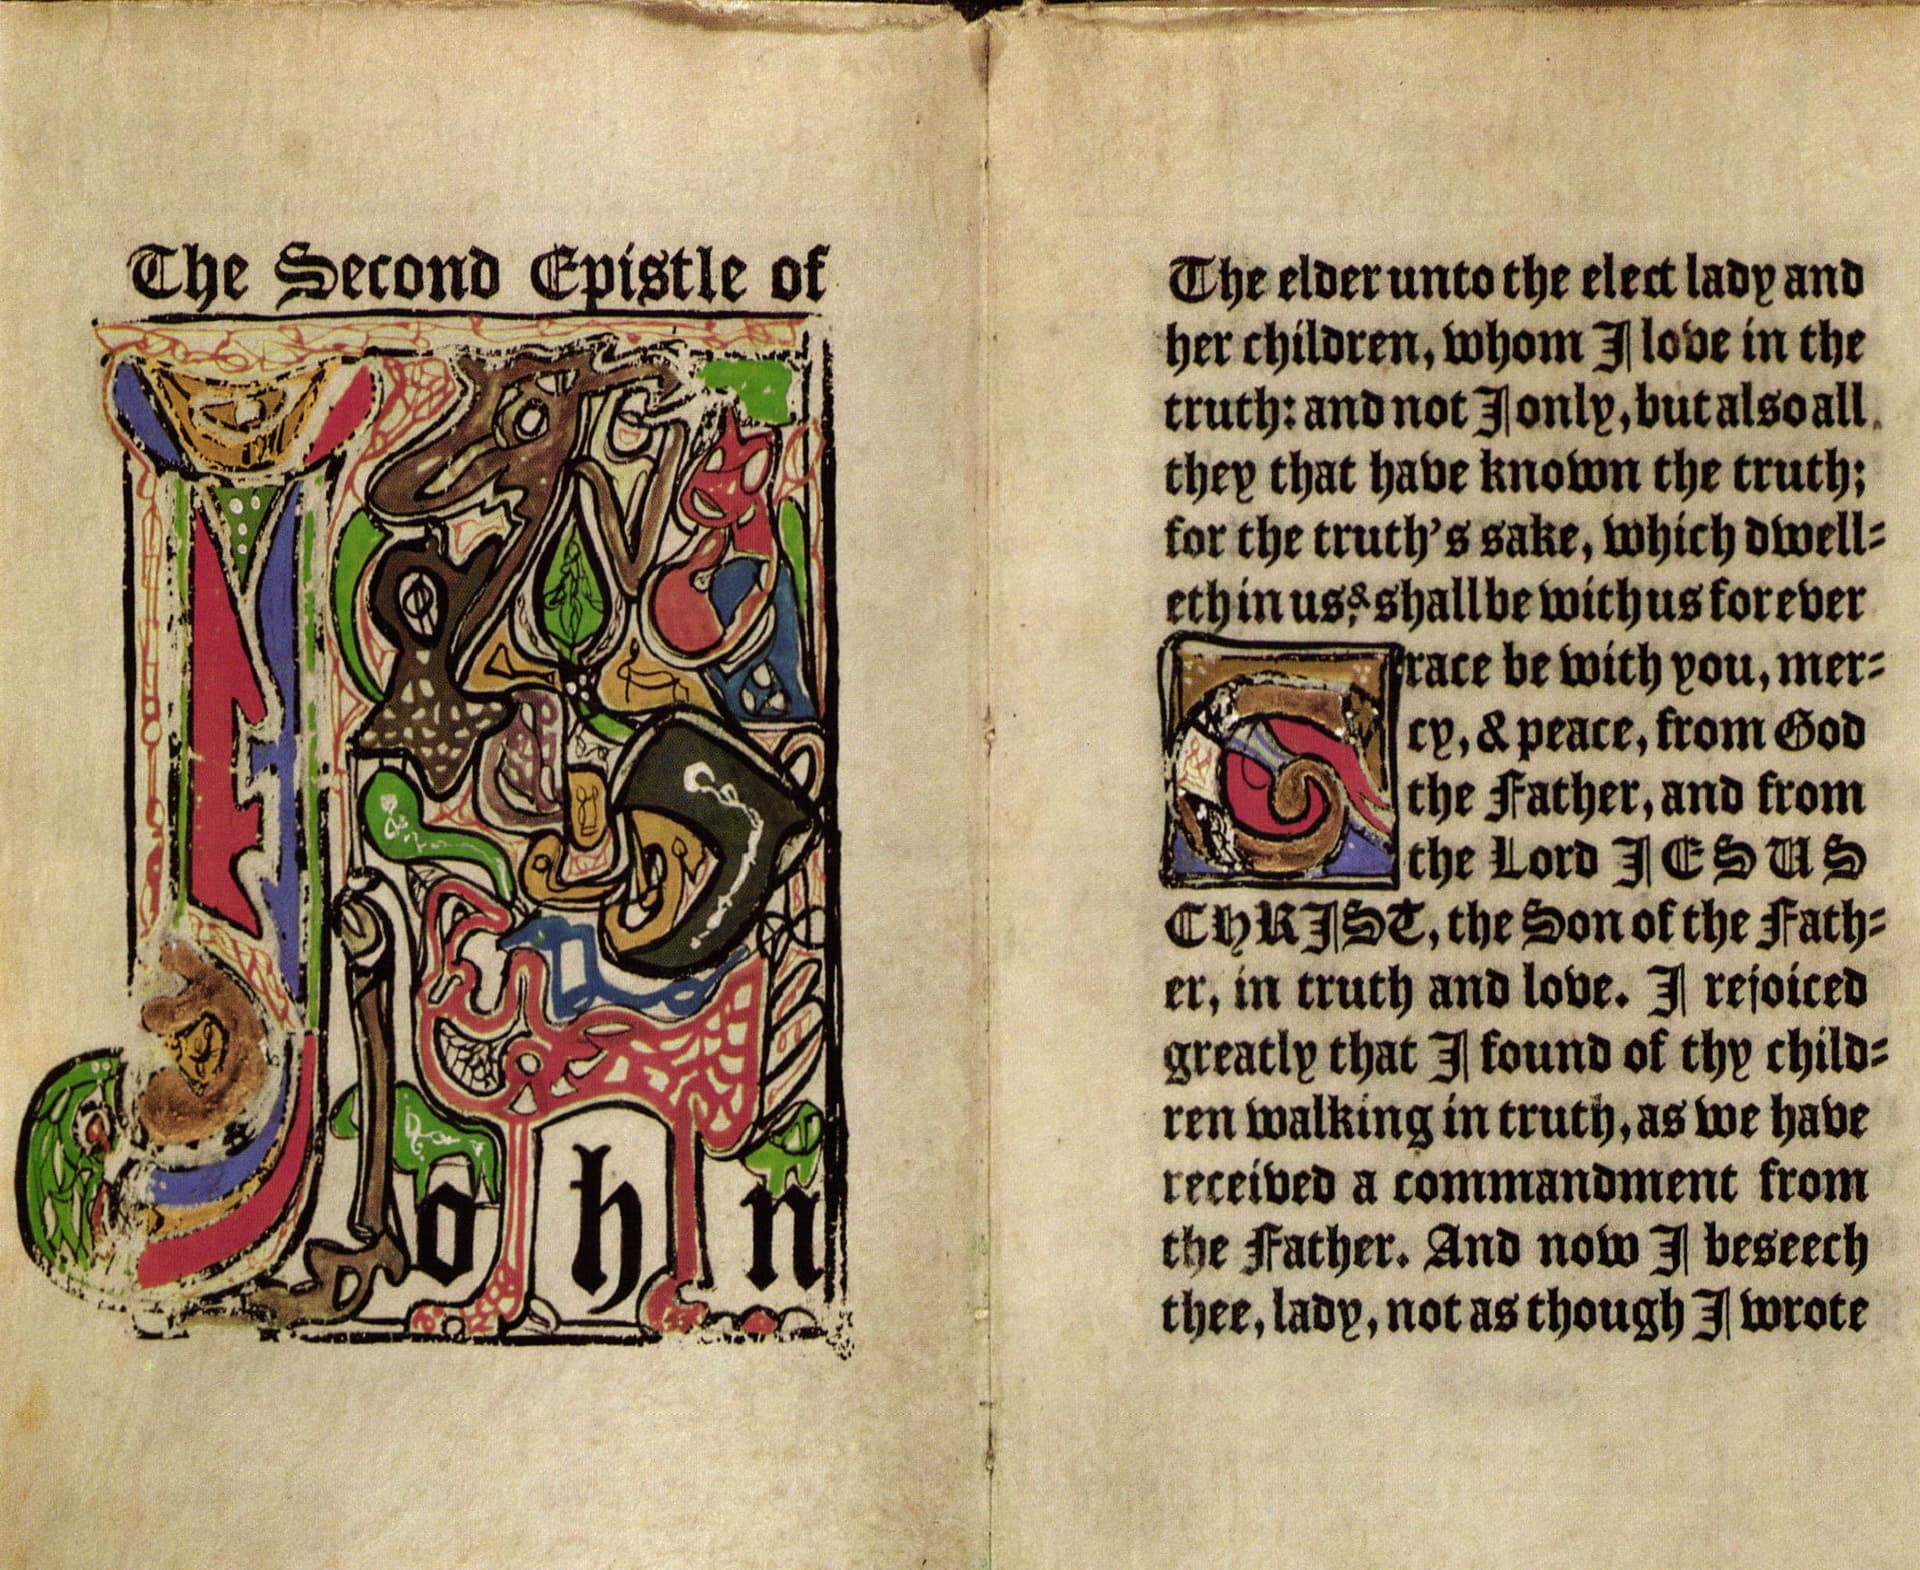 The Second Epistle of
John
The elder unto the elect lady and
her children, whom I love in the
truth: and not I only, but also all
they that have known the truth;
for the truth's sake, which dwell=
eth in us, & shall be with us forever
Grace be with you, mer=
cy, & peace, from God
the Father, and from
the Lord JESUS
CHRIST, the Son of the Fath=
er, in truth and love. I rejoiced
greatly that I found of thy child=
ren walking in truth, as we have
received a commandment from
the Father. And now I beseech
thee, lady, not as though I wrote